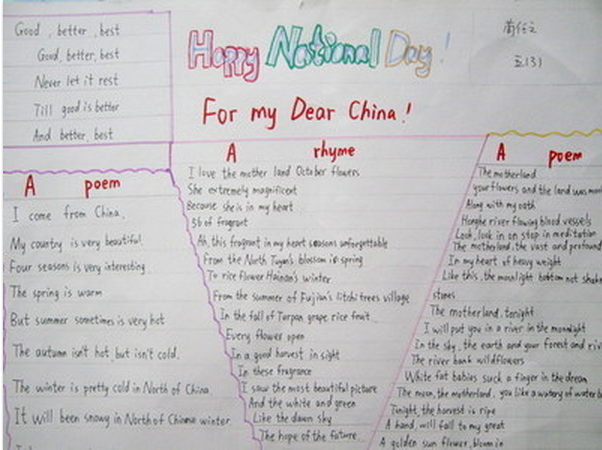 Good, better, best
Good, better, best
Never let it rest
Till good is better
And better, best
Happy National Day!
五(3)
For my Dear China!
A poem
I come from China.
My country is very beautiful.
Four seasons is very interesting.
The spring is warm
But summer sometimes is very hot
The autumn isn't hot but isn't cold.
The winter is pretty cold in North of China.
It will been snowy in North of Chinese winter.
A rhyme
I love the mother land October flowers
She extremely magnificent
Because she is in my heart
56 of fragrant
Ah, this fragrant in my heart seasons unforgettable
From the North blossom in spring
To rice flower Hainan's winter
From the summer of Fujian's litchi trees village
In the fall of Turpan grape rice fruit...
Every flower open
In a good harvest in sight
In these fragrance
I saw the most beautiful picture
And the white and green
Like the dawn sky
The hope of the future...
A poem
The motherland
your flowers and the land was
Along with my oath
Honghe river flowing blood vessels
Look, look in an stop in meditation
The motherland, the vast and profound
In my heart of heavy weight
Like this, the moonlight bottom not shake
stones
The motherland, tonight
I will put you in a river in the moonlight
In the sky, the earth and your forest and
The river bank wildflowers
White fat babies suck a finger in the dream
The moon, the motherland, you like a watery of water
Tonight, the harvest is ripe
A hand, will fall to my great
A golden sun flower, bloom in